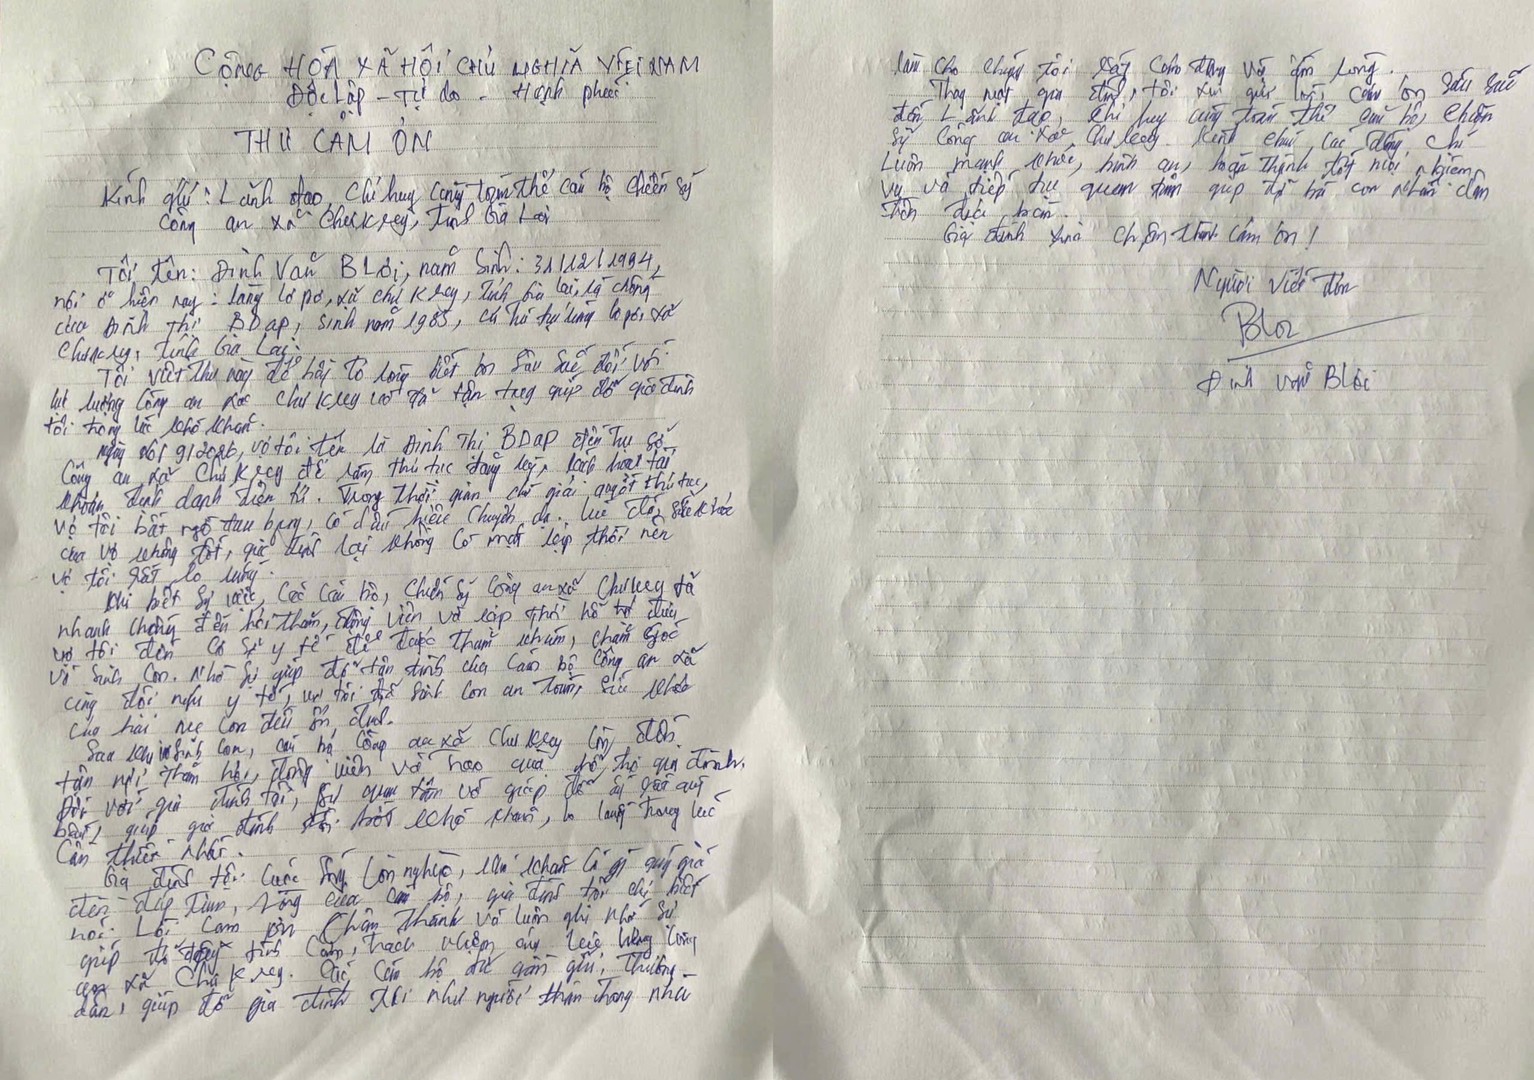 CỘNG HÒA XÃ HỘI CHỦ NGHĨA VIỆT NAM
Độc lập - Tự do - Hạnh phúc
THƯ CẢM ƠN
Kính gửi: Lãnh đạo, chỉ huy cùng toàn thể cán bộ chiến sỹ
Công an xã Chư Krey, tỉnh Gia Lai
Tôi tên: Đinh Văn BLơi, năm sinh: 31/12/1984,
nơi ở hiện nay: làng lơ pơ, xã chư Krey, tỉnh Gia lai, là chồng
của Đinh Thị BDap, sinh năm 1985, cư trú tại làng lơ pơ, xã
Chư Krey, tỉnh Gia Lai.
Tôi viết thư này để bày tỏ lòng biết ơn sâu sắc đối với
lực lượng Công an xã Chư Krey vì đã tận tình giúp đỡ gia đình
tôi trong lúc khó khăn.
Ngày vợ tôi tên là Đinh Thị BDap đến trụ sở
Công an xã Chư Krey để làm thủ tục đăng ký, kích hoạt tài
khoản định danh điện tử. Trong thời gian chờ giải quyết thủ tục,
vợ tôi bất ngờ đau bụng, có dấu hiệu chuyển dạ. Lúc đó, sức khỏe
của vợ không tốt, gia đình lại không có mặt kịp thời nên
vợ tôi rất lo lắng.
Khi biết sự việc, các cán bộ, chiến sỹ Công an xã Chư Krey đã
nhanh chóng đến hỏi thăm, động viên và kịp thời hỗ trợ đưa
vợ tôi đến cơ sở y tế để được thăm khám, chăm sóc
và sinh con. Nhờ sự giúp đỡ tận tình của cán bộ Công an xã
cùng đội ngũ y tế, vợ tôi đã sinh con an toàn, sức khỏe
của hai mẹ con đều ổn định.
Sau khi sinh con, cán bộ Công an xã Chư Krey còn đến
tận nơi thăm hỏi, động viên và trao quà hỗ trợ gia đình.
Đối với gia đình tôi, sự quan tâm và giúp đỡ ấy rất quý
báu, giúp gia đình tôi bớt khó khăn, lo lắng trong lúc
cần thiết nhất.
Gia đình tôi cuộc sống còn nghèo, khó khăn có gì quý giá
đền đáp tấm lòng của cán bộ, gia đình tôi chỉ biết
nói lời cảm ơn chân thành và luôn ghi nhớ sự
giúp đỡ đầy tình cảm, trách nhiệm của lực lượng Công
an xã Chư Krey. Các cán bộ đã gần gũi, thương
dân, giúp đỡ gia đình tôi như người thân trong nhà
làm cho chúng tôi rất cảm động và ấm lòng.
Thay mặt gia đình, tôi xin gửi lời cảm ơn sâu sắc
đến Lãnh đạo, chỉ huy cùng toàn thể cán bộ, chiến
sỹ Công an xã Chư Krey. Kính chúc các đồng chí
luôn mạnh khỏe, bình an, hoàn thành tốt mọi nhiệm
vụ và tiếp tục quan tâm giúp đỡ bà con nhân dân
trên địa bàn.
Gia đình xin chân thành cảm ơn!
Người viết đơn
BLơi
Đinh Văn BLơi